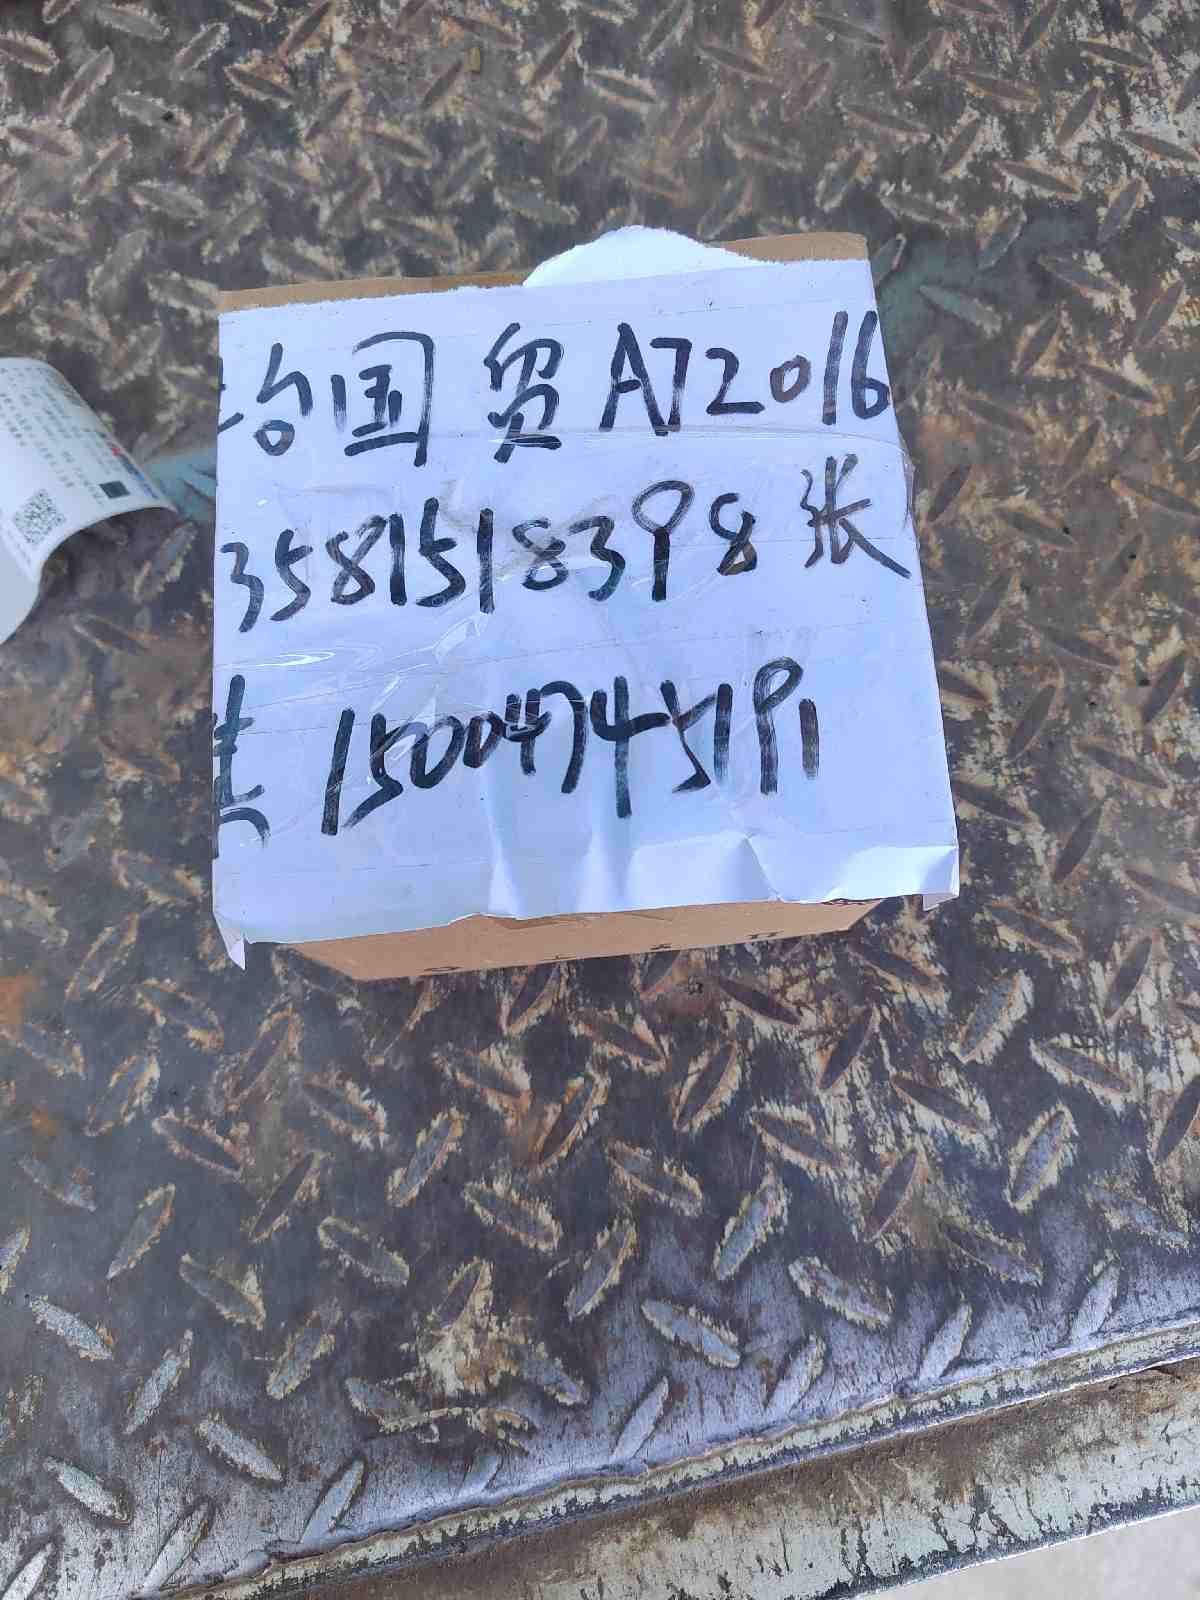 国贸A72016
3581518398 张
15004745191